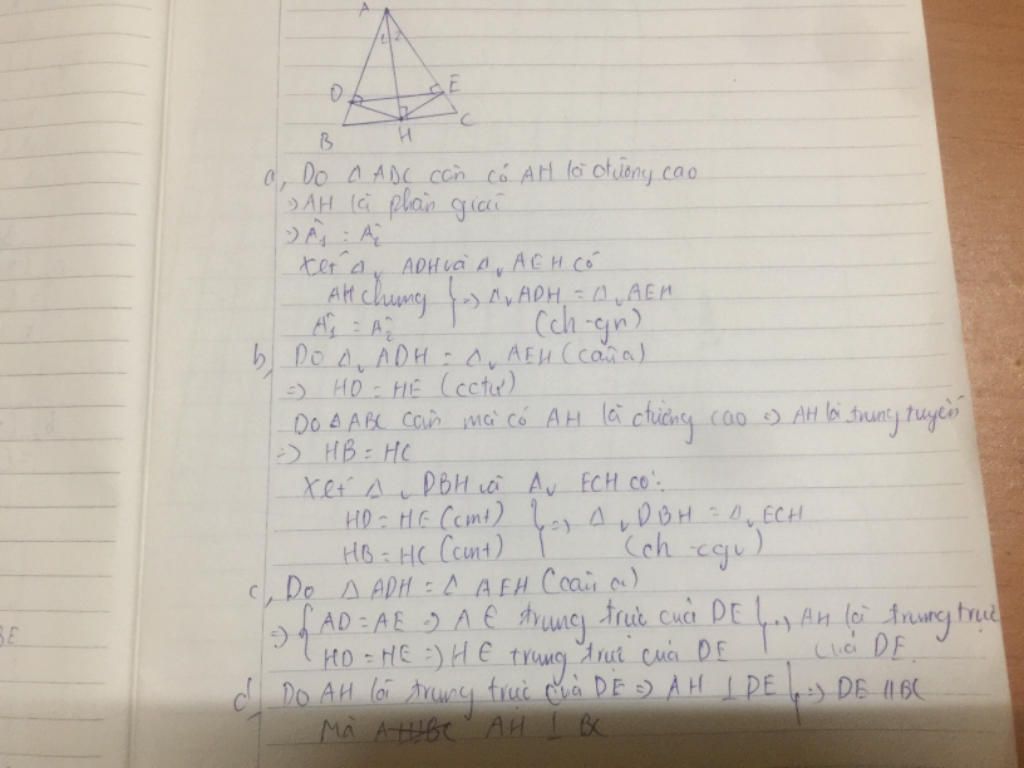 A
1 2
D E
B H C
a, Do Δ ABC cân có AH là đường cao
=> AH là phân giác
=> Â1 = Â2
Xét Δv ADH và Δv AEH có
AH chung } => Δv ADH = Δv AEH
Â1 = Â2 (ch-gn)
b, Do Δv ADH = Δv AEH (câu a)
=> HD = HE (cctư)
Do Δ ABC cân mà có AH là đường cao => AH là trung tuyến
=> HB = HC
Xét Δv DBH và Δv ECH có:
HD = HE (cmt) } => Δv DBH = Δv ECH
HB = HC (cmt) (ch-cgv)
c, Do Δ ADH = Δ AEH (câu a)
=> { AD = AE => A ∈ trung trực của DE } => AH là trung trực
HD = HE => H ∈ trung trực của DE của DE
d, Do AH là trung trực của DE => AH ⊥ DE } => DE // BC
Mà AH ⊥ BC
BE